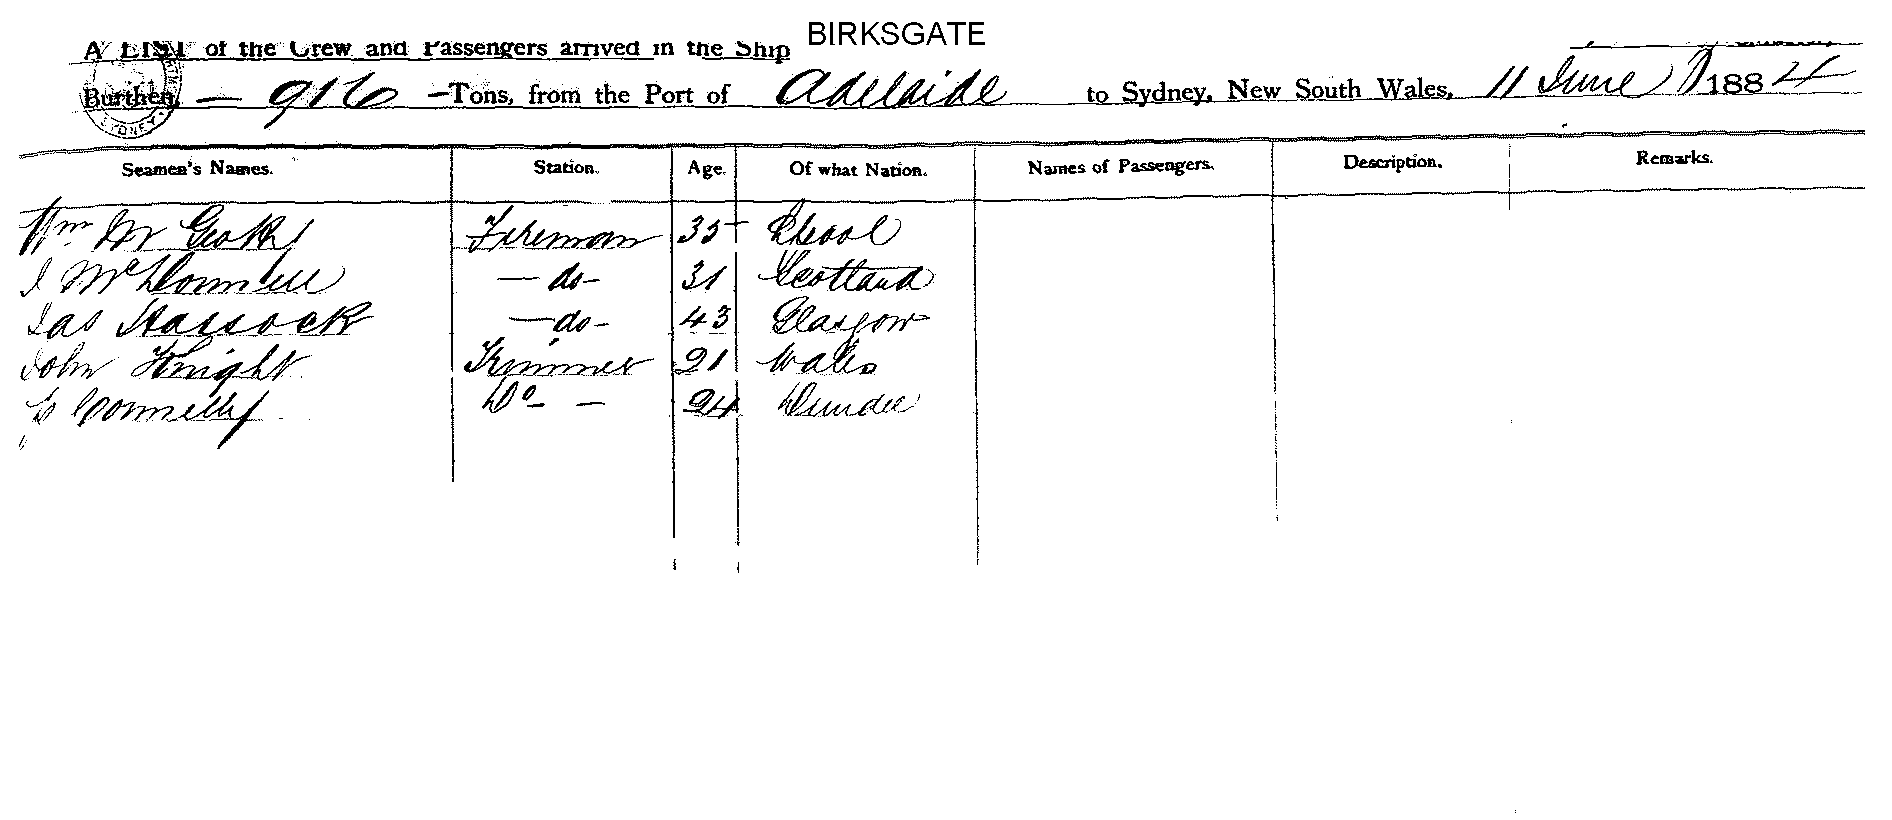 A LIST of the Crew and Passengers arrived in the Ship BIRKSGATE
Burthen, — 916 — Tons, from the Port of Adelaide to Sydney, New South Wales, 11 June 1884
SYDNEY
Seamen's Names. Station. Age. Of what Nation. Names of Passengers. Description. Remarks.
Wm Mc Fireman 35 L'pool
J McDonnell —do— 31 Scotland
Jas Hassock —do— 43 Glasgow
John Knight Trimmer 21 Wales
Connelly Do— — 24 Dundee